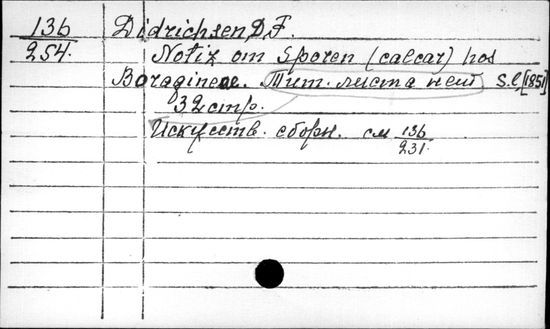 136 Didrichsen, D. F.
254. Notiz om Sporen (calcar) hos
Boragineae. Тит. листа нет S. l. [1851]
32 стр.
Искусств. сборн. см 136
231.